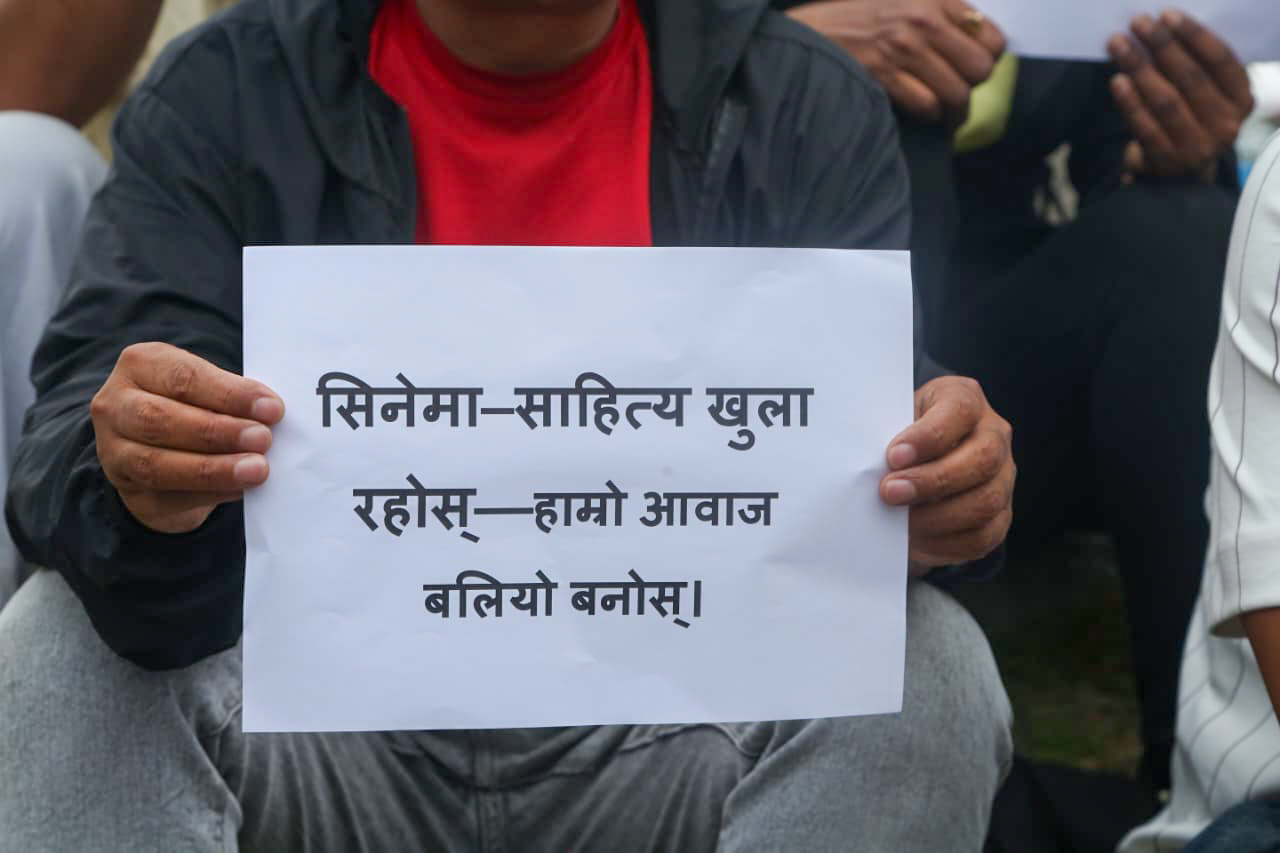 सिनेमा–साहित्य खुला
रहोस्—हाम्रो आवाज
बलियो बनोस्।